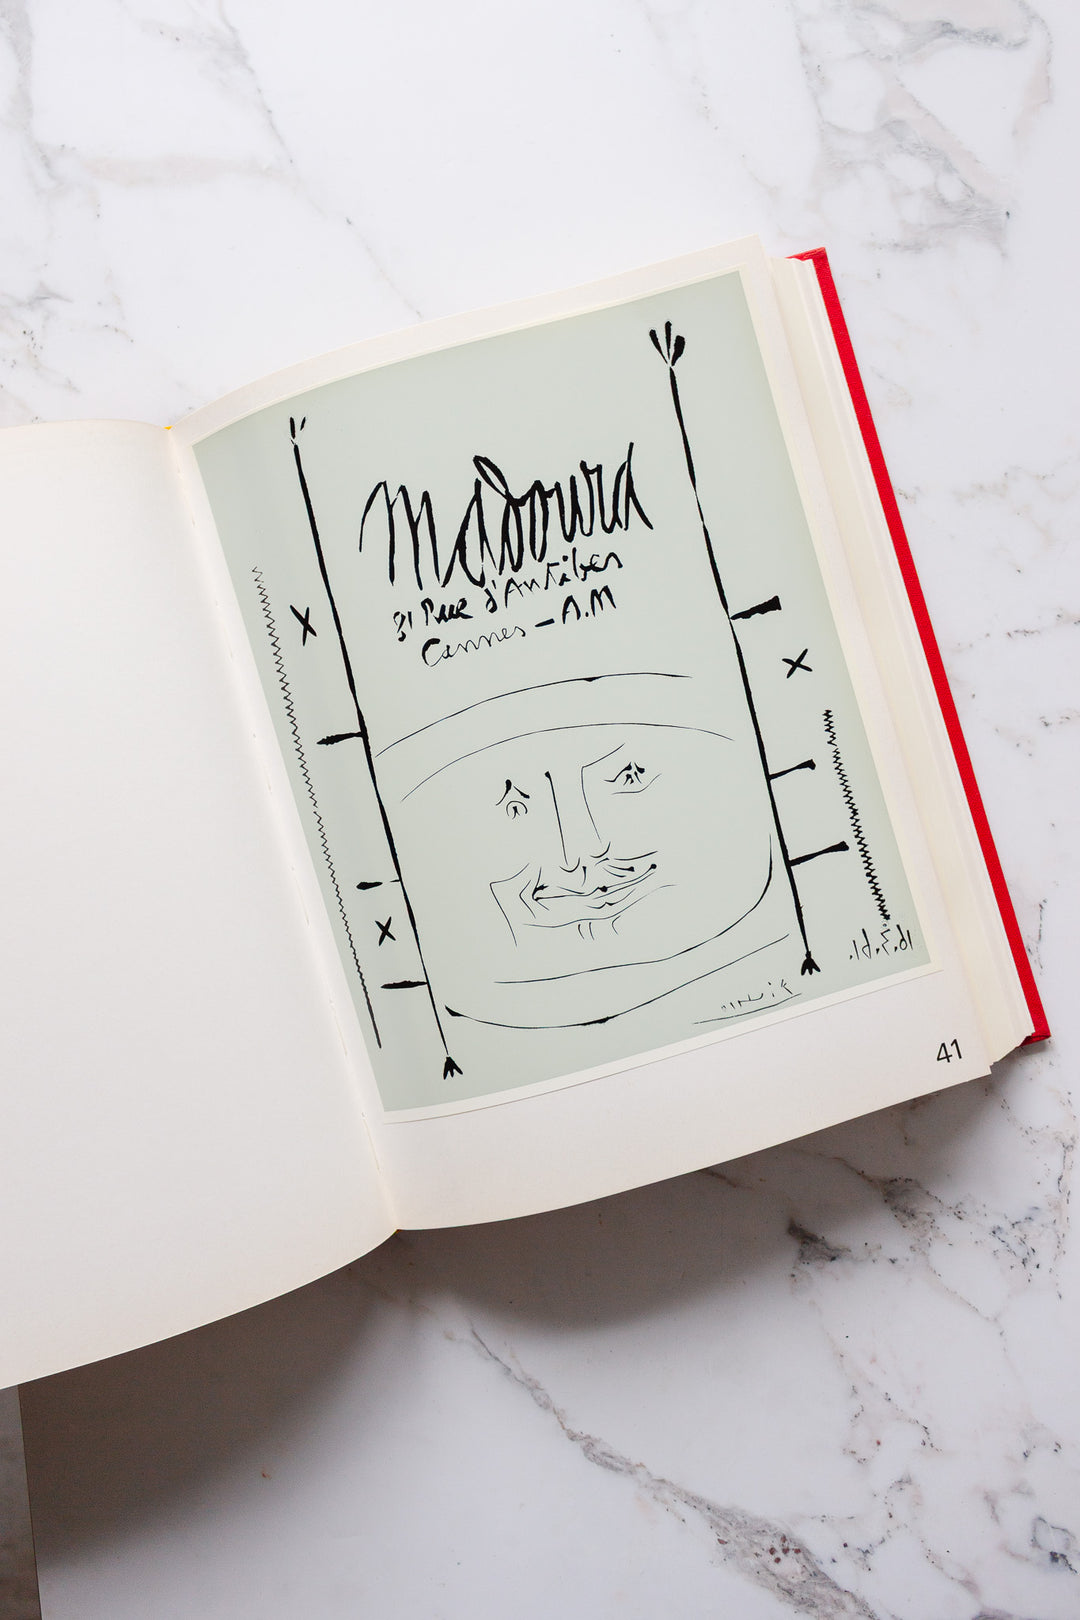 Madoura
31 Rue d'Antibes
Cannes - A.M
16.3.61.
Picasso
41